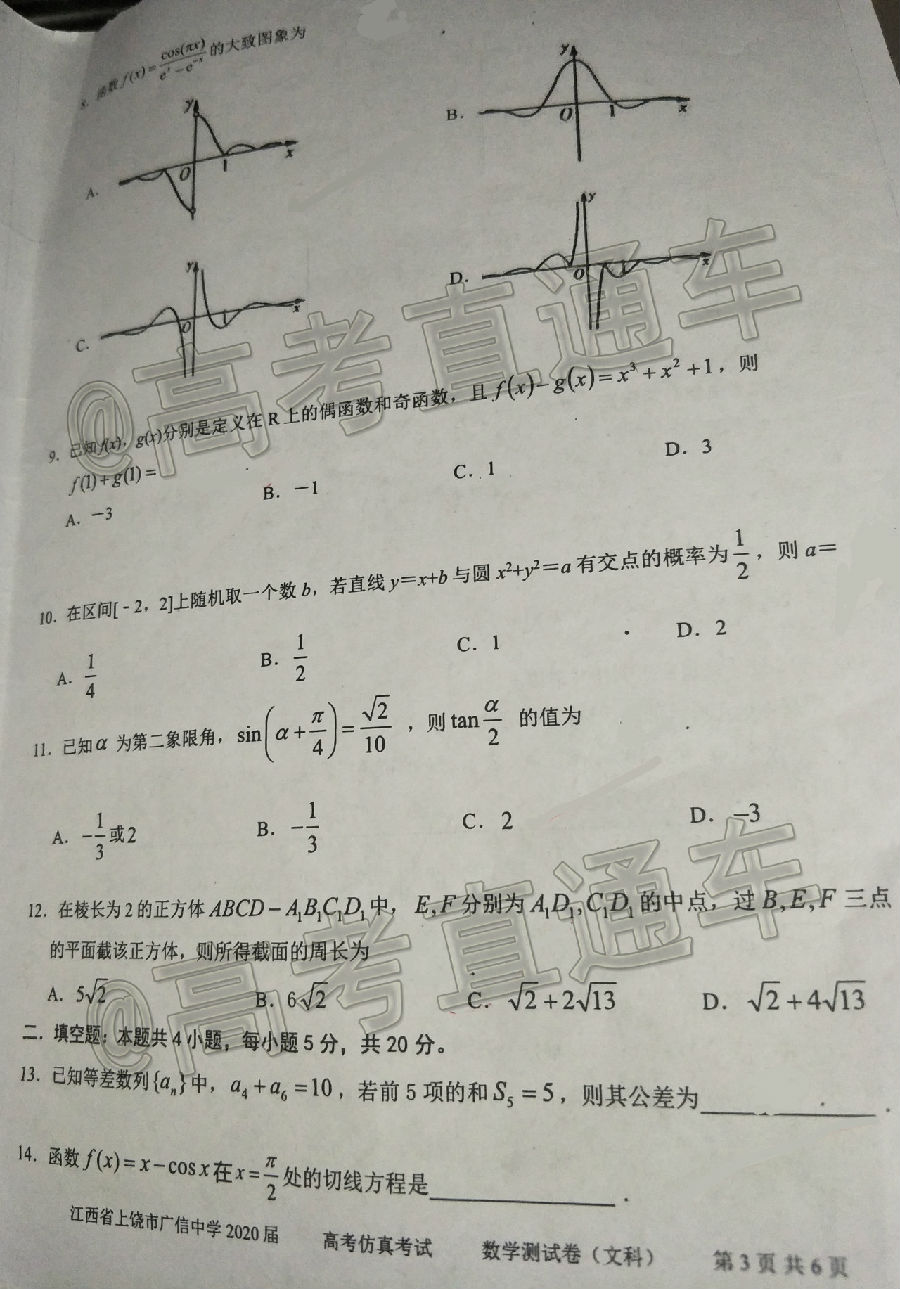 8. 函数 f(x)=cos(πx)/(e^x−e^−x) 的大致图象为
A. y O 1 x
B. y O 1 x
C. y O 1 x
D. y O 1 x
9. 已知f(x), g(x)分别是定义在 R 上的偶函数和奇函数，且 f(x)−g(x)=x³+x²+1，则
f(1)+g(1)=
A. −3 B. −1 C. 1 D. 3
10. 在区间[﹣2，2]上随机取一个数 b，若直线 y=x+b 与圆 x²+y²=a 有交点的概率为 1/2，则 a=
A. 1/4 B. 1/2 C. 1 D. 2
11. 已知α 为第二象限角，sin(α+π/4)=√2/10，则 tan α/2 的值为
A. −1/3 或 2 B. −1/3 C. 2 D. −3
12. 在棱长为 2 的正方体 ABCD−A₁B₁C₁D₁ 中，E,F 分别为 A₁D₁,C₁D₁ 的中点，过 B,E,F 三点
的平面截该正方体，则所得截面的周长为
A. 5√2 B. 6√2 C. √2+2√13 D. √2+4√13
二. 填空题：本题共 4 小题，每小题 5 分，共 20 分。
13. 已知等差数列{aₙ}中，a₄+a₆=10，若前 5 项的和 S₅=5，则其公差为________.
14. 函数 f(x)=x−cosx 在 x=π/2 处的切线方程是________.
江西省上饶市广信中学 2020 届 高考仿真考试 数学测试卷（文科） 第 3 页 共 6 页
@高考直通车
@高考直通车